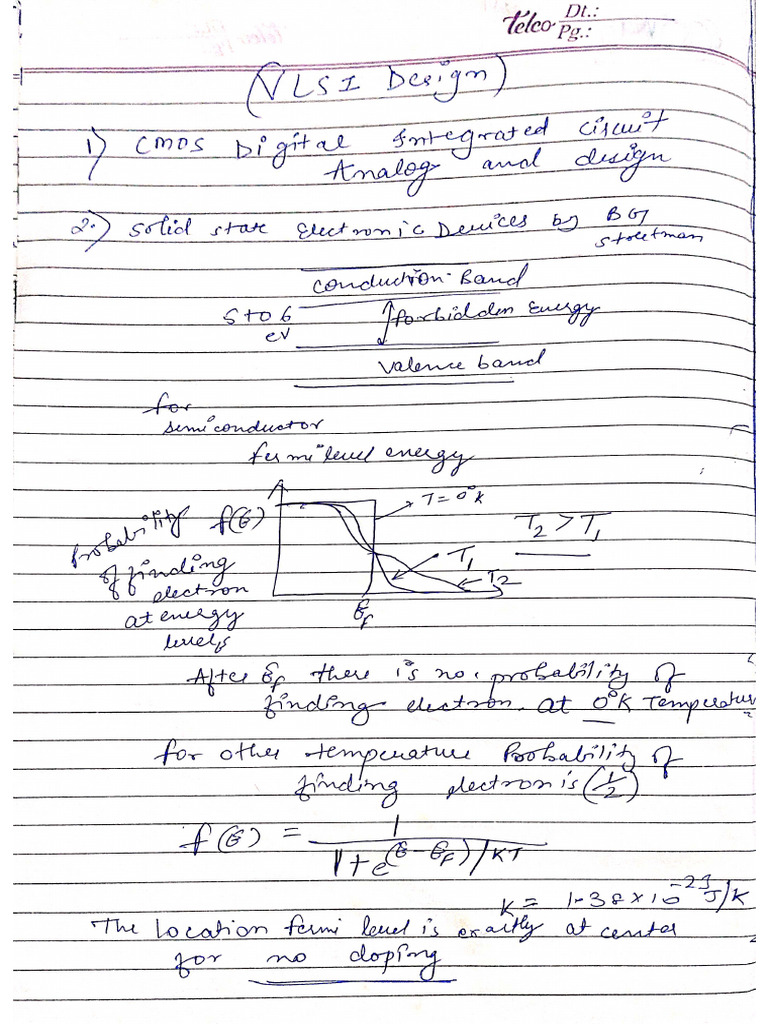 Telco Dt.:
Pg.:
(VLSI Design)
1) CMOS Digital Integrated Circuit
Analog and design
2.) Solid state Electronic Devices by BG
Stretman
Conduction Band
5 to 6
eV
forbidden Energy
Valence band
for
semiconductor
fermi level energy
Probability
of finding
electron
at energy
levels
f(E)
T = 0°K
T2 > T1
T1
T2
Ef
After Ef there is no probability of
finding electron at 0°K Temperature
for other temperature Probability of
finding electron is (1/2)
f(E) = 1 / 1+e^(E-Ef)/KT
K = 1.38 x 10^-23 J/K
The location fermi level is exactly at center
for no doping